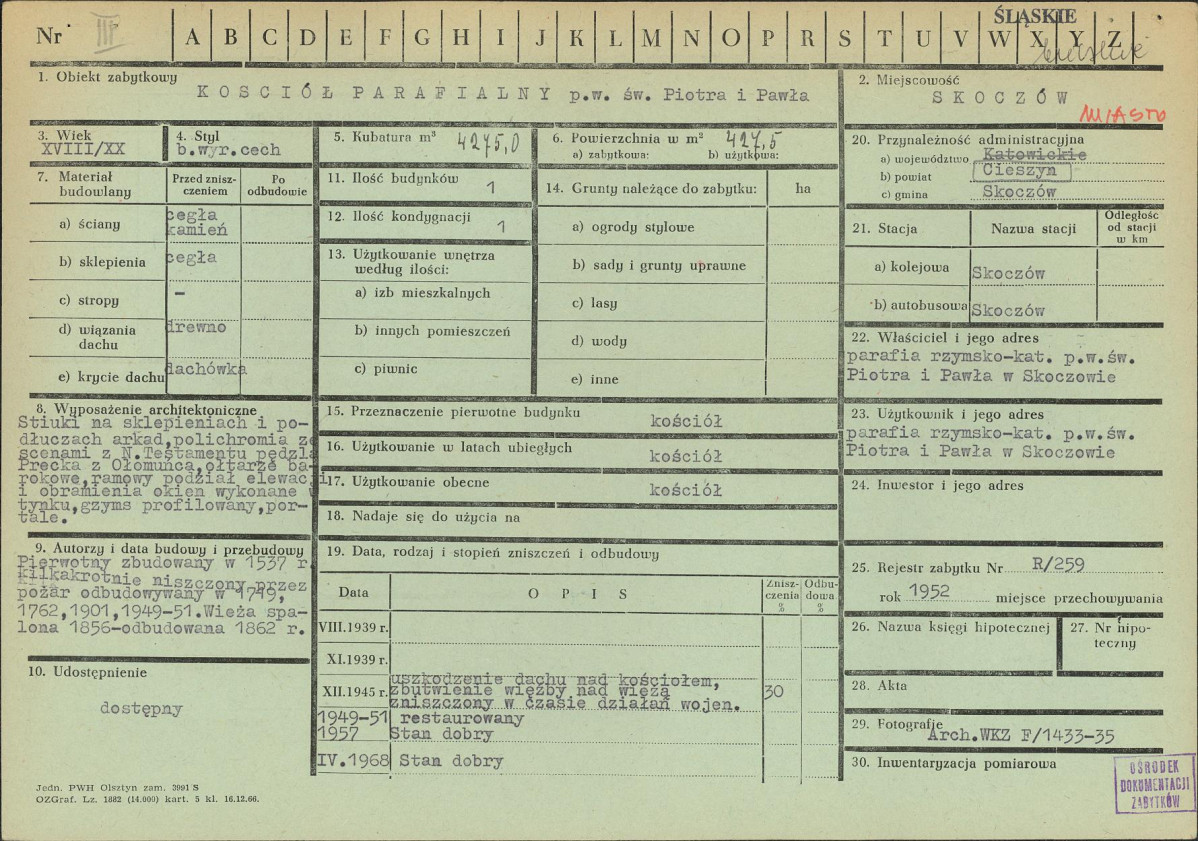 Nr III A B C D E F G H I J K L M N O P R S T U V W X Y Z
ŚLĄSKIE
1. Obiekt zabytkowy
KOSCIÓŁ PARAFIALNY p.w. św. Piotra i Pawła
2. Miejscowość
SKOCZÓW
MIASTO
3. Wiek
XVIII/XX
4. Styl
b.wyr.cech
5. Kubatura m³ 4275,0
6. Powierzchnia w m² 427,5
a) zabytkowa: b) użytkowa:
20. Przynależność administracyjna
a) województwo Katowickie
b) powiat Cieszyn
c) gmina Skoczów
7. Materiał budowlany
Przed zniszczeniem
Po odbudowie
a) ściany
cegła
kamień
b) sklepienia cegła
c) stropy –
d) wiązania dachu
drewno
e) krycie dachu dachówka
11. Ilość budynków 1
12. Ilość kondygnacji 1
13. Użytkowanie wnętrza
według ilości:
a) izb mieszkalnych
b) innych pomieszczeń
c) piwnic
14. Grunty należące do zabytku: ha
a) ogrody stylowe
b) sady i grunty uprawne
c) lasy
d) wody
e) inne
21. Stacja Nazwa stacji
Odległość
od stacji
w km
a) kolejowa Skoczów
b) autobusowa Skoczów
22. Właściciel i jego adres
parafia rzymsko-kat. p.w.św.
Piotra i Pawła w Skoczowie
8. Wyposażenie architektoniczne
Stiuki na sklepieniach i po-
dłuczach arkad,polichromia ze
scenami z N.Testamentu pędzla
Precka z Ołomuńca,ołtarze ba-
rokowe,ramowy podział elewacji
i obramienia okien wykonane w
tynku,gzyms profilowany,por-
tale.
15. Przeznaczenie pierwotne budynku kościół
16. Użytkowanie w latach ubiegłych kościół
17. Użytkowanie obecne kościół
18. Nadaje się do użycia na
23. Użytkownik i jego adres
parafia rzymsko-kat. p.w.św.
Piotra i Pawła w Skoczowie
24. Inwestor i jego adres
9. Autorzy i data budowy i przebudowy
Pierwotny zbudowany w 1537 r.
kilkakrotnie niszczony przez
pożar odbudowywany w 1749,
1762,1901,1949-51.Wieża spa-
lona 1856-odbudowana 1862 r.
10. Udostępnienie
dostępny
19. Data, rodzaj i stopień zniszczeń i odbudowy
Data OPIS
Znisz-
czenia
%
Odbu-
dowa
%
VIII.1939 r.
XI.1939 r.
XII.1945 r.
uszkodzenie dachu nad kościołem,
zbutwienie więźby nad wieżą
zniszczony w czasie działań wojen.
30
1949-51 restaurowany
1957 Stan dobry
IV.1968 Stan dobry
25. Rejestr zabytku Nr R/259
rok 1952 miejsce przechowywania
26. Nazwa księgi hipotecznej
27. Nr hipo-
teczny
28. Akta
29. Fotografie
Arch.WKZ F/1433-35
30. Inwentaryzacja pomiarowa
OŚRODEK
DOKUMENTACJI
ZABYTKÓW
Jedn. PWH Olsztyn zam. 3991 S
OZGraf. Lz. 1882 (14.000) kart. 5 kl. 16.12.66.